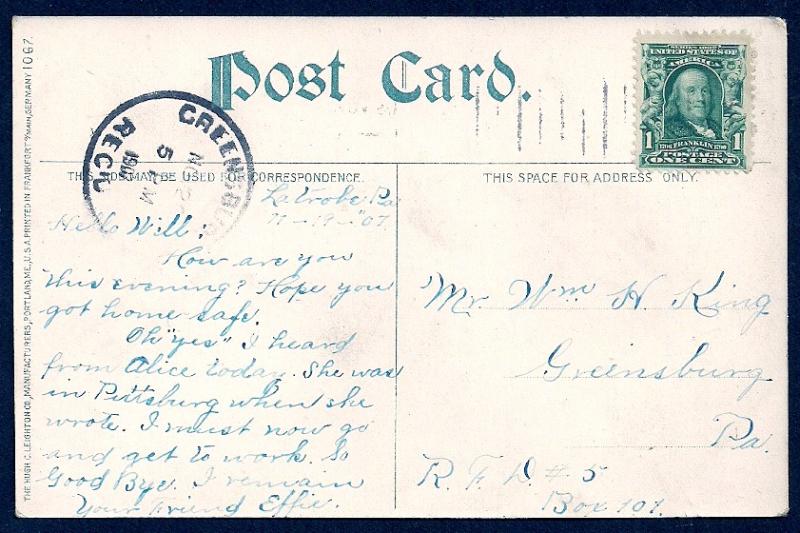 Post Card.
SERIES 1902
UNITED STATES OF
AMERICA
1 FRANKLIN 1
POSTAGE
ONE CENT
GREENSBU
5 PM
190
REC'D
THIS SIDE MAY BE USED FOR CORRESPONDENCE.
THIS SPACE FOR ADDRESS ONLY.
Latrobe, Pa
11-19-"07
Hello Will;
How are you
this evening? Hope you
got home safe.
Oh "yes" I heard
from Alice today. She was
in Pittsburg when she
wrote. I must now go
and get to work. So
Good Bye. I remain
Your Friend Effie.
Mr. Wm H. King
Greensburg
Pa.
R. F. D. # 5
Box 101.
THE HUGH C. LEIGHTON CO., MANUFACTURERS, PORTLAND, ME., U.S.A. PRINTED IN FRANKFORT o/MAIN, GERMANY 1067.